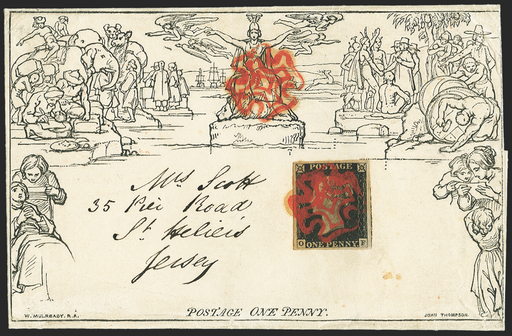 Mrs Scott
35 Pier Road
St Heliers
Jersey
POSTAGE
ONE PENNY
POSTAGE ONE PENNY.
W. MULREADY. R.A.
JOHN THOMPSON.